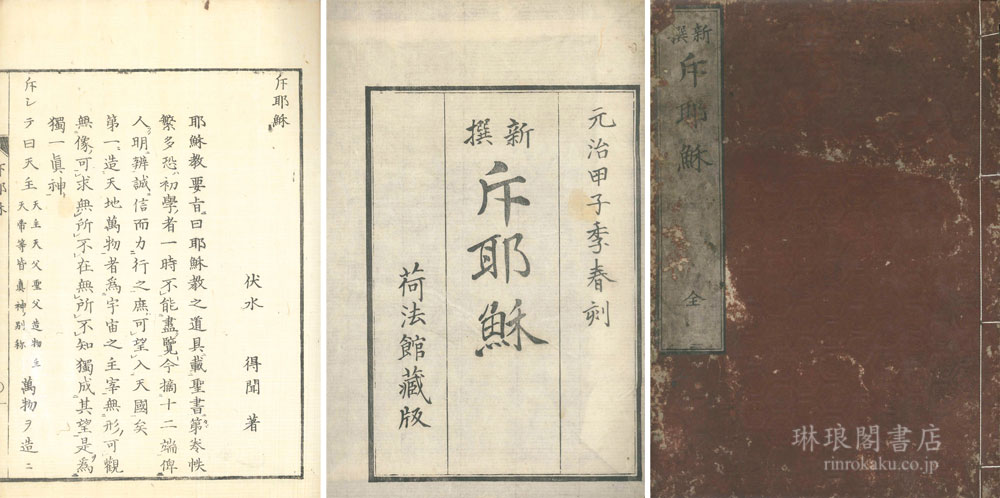 斥耶穌
伏水　得聞　著
耶穌教要旨曰耶穌教之道具載聖書第卷帙
繁多恐初學者一時不能盡覽今摘十二端俾
人明辨誠信而力行之庶可望入天國矣
第一造天地萬物者為宇宙之主宰無形可觀
無像可求無所不在無所不知獨成其望是為
獨一眞神
斥シテ曰天主
天主天父聖父造物主
天帝等皆眞神ノ別称
萬物ヲ造ニ
元治甲子季春刻
新撰
斥耶穌
荷法館藏版
新撰
斥耶穌
全
琳琅閣書店
rinrokaku.co.jp